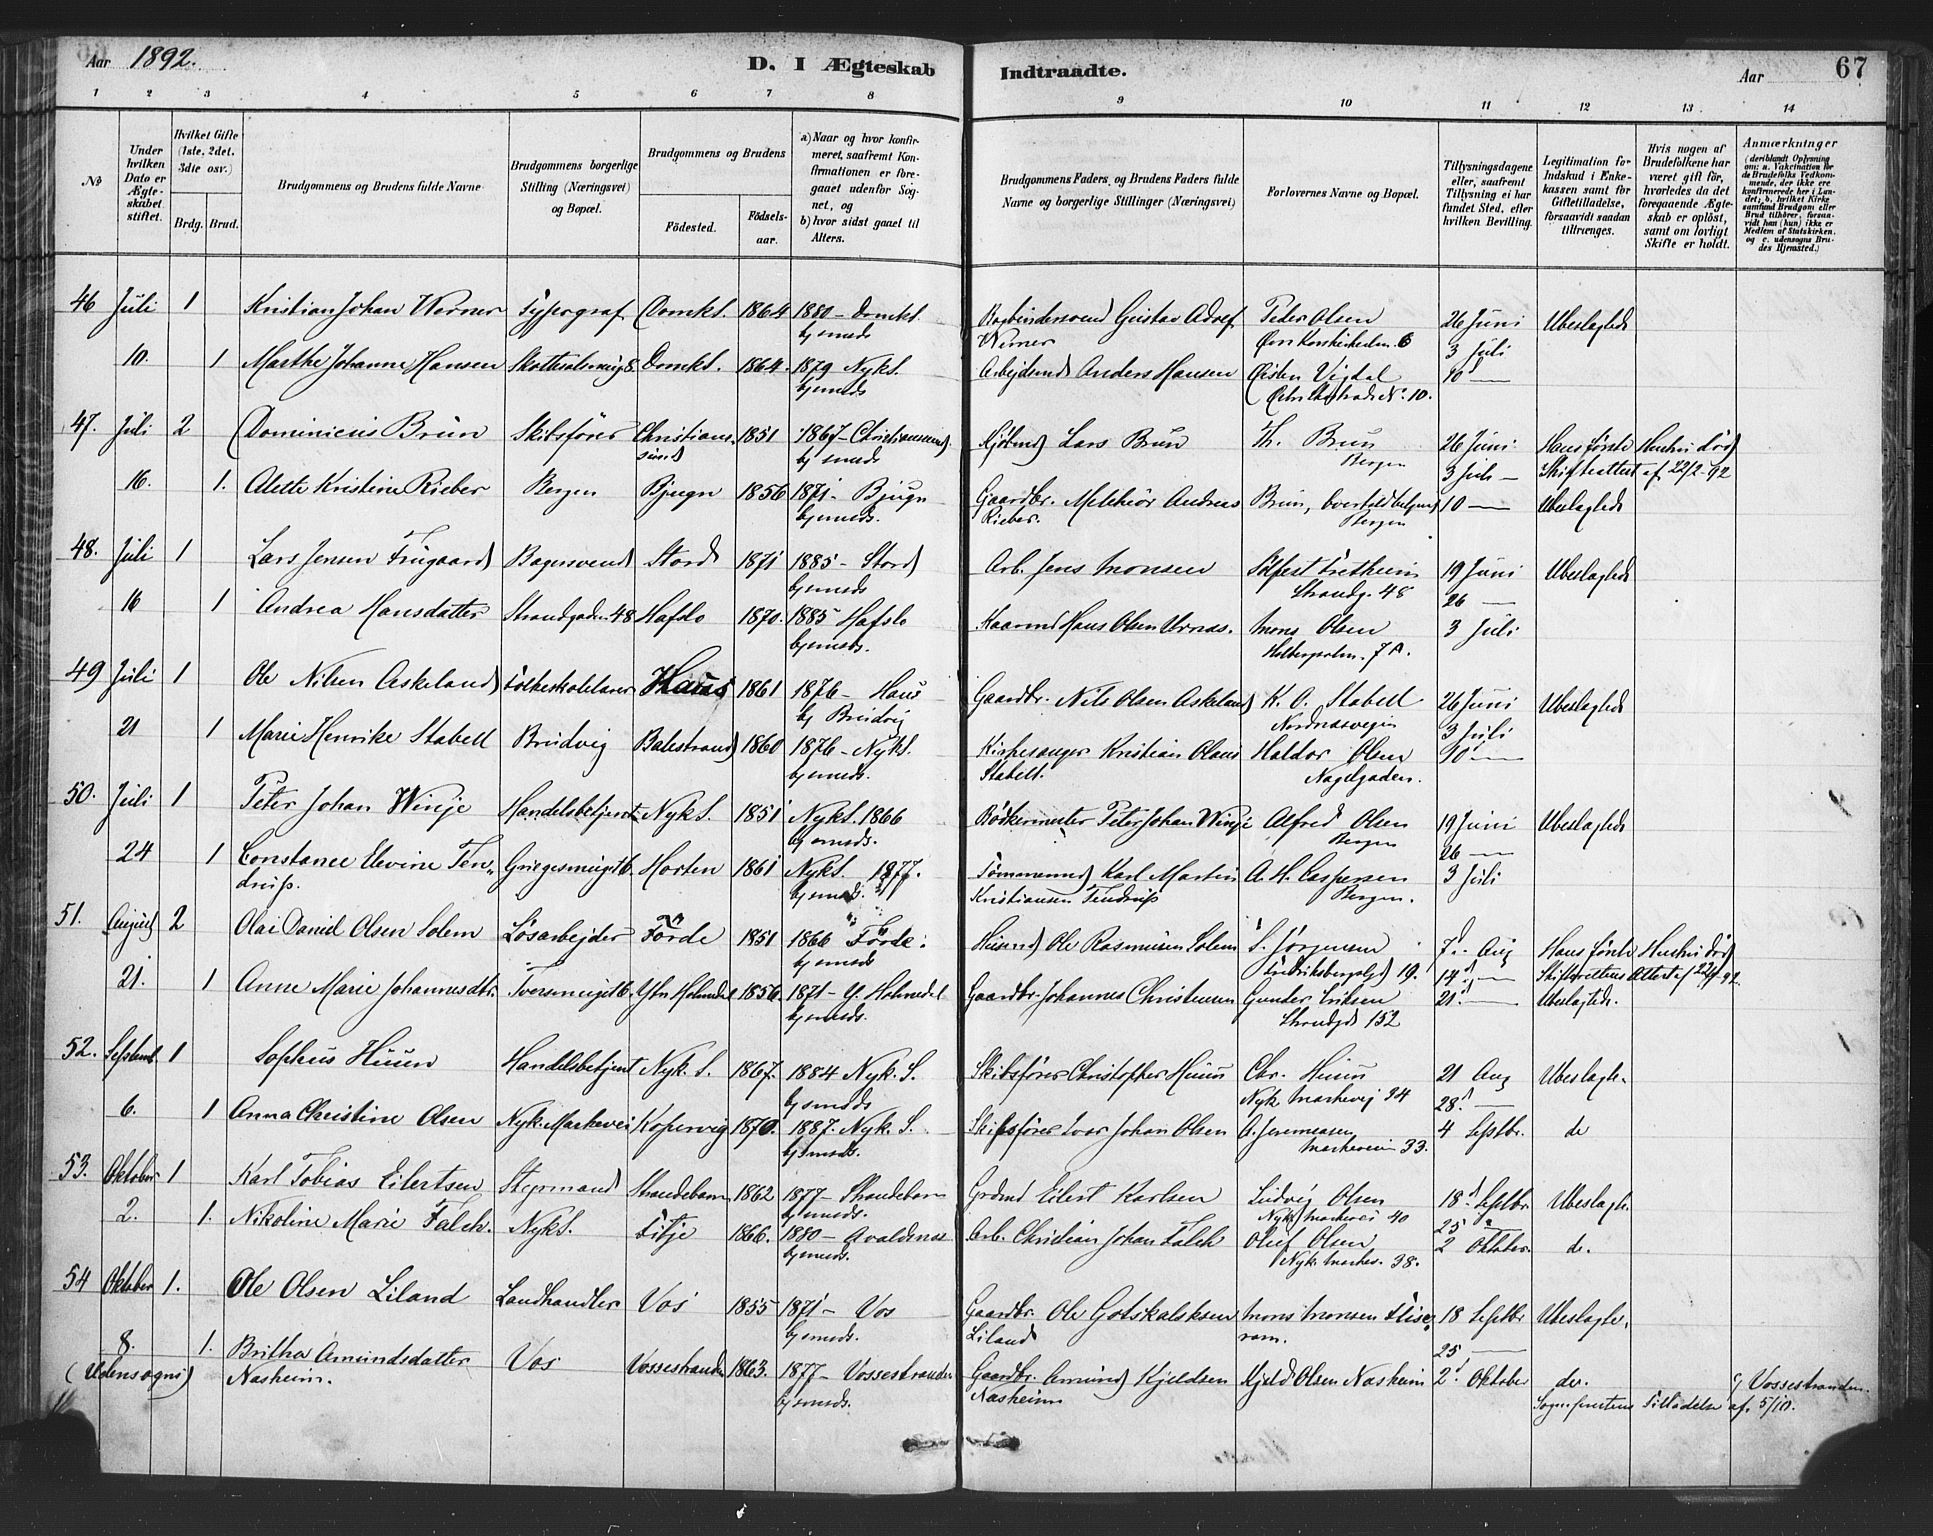 Aar 1892. D. I Ægteskab
Indtraadte. Aar 67
1 2 3 4 5 6 7 8
9 10 11 12 13 14
No
Under hvilken Dato er Ægteskabet stiftet.
Hvilket Gifte (1ste, 2det, 3die osv.)
Brdg. Brud.
Brudgommens og Brudens fulde Navne
Brudgommens borgerlige Stilling (Næringsvei) og Bopæl.
Brudgommens og Brudens
Fødested. Fødselsaar.
a) Naar og hvor konfirmeret, saafremt Konfirmationen er foregaaet udenfor Sognet, og
b) hvor sidst gaaet til Alters.
Brudgommens Faders, og Brudens Faders fulde Navne og borgerlige Stillinger (Næringsvei)
Forlovernes Navne og Bopæl.
Tillysningsdagene eller, saafremt Tillysning ei har fundet Sted, efter hvilken Bevilling.
Legitimation for Indskud i Enkekassen samt for Giftetilladelse, forsaavidt saadan tiltrænges.
Hvis nogen af Brudefolkene har været gift før, hvorledes da det foregaaende Ægteskab er opløst, samt om lovligt Skifte er holdt.
Anmærkninger
(deriblandt Oplysning om: a. Vakcination for de Brudefolks Vedkommende, der ikke ere konfirmerede her i Landet; b. hvilket Kirkesamfund Brudgom eller Brud tilhører, forsaavidt han (hun) ikke er Medlem af Statskirken. og c. udensogns Brudes Hjemsted.)
46 Juli 1 Kristian Johan Werner Typograf Domks. 1864 1880 - Domks. Bogbindersvend Gustav Adolf Peter Olsen 26 Juni Ubeslagtede
bj smeds Werner 3 Juli
10. 1 Marthe Johanne Hansen Domks. 1864. 1879 Nyks. Arbejdsmd Anders Hansen Vigdal 10 —
bj smeds
47. Juli 2 Dominicus Brun Skibsfører Christians- 1851 1867 - Christianssund. Kjøbmd Lars Brun Th. Brun 26 Juni Hans første Hustru død
sund bj smeds Bergen 3 Juli — Skifteattest af 22/2 - 92
16. 1. Alette Kristine Rieber Bergen Bjugn 1856 1871 - Bjugn Gaardbr. Melchior Andreas Brun, Bergen 10 — Ubeslagtede
bj smeds. Rieber.
48. Juli 1 Lars Jensen Frugaard Bagersvend Stord 1871 1885 - Stord Arb. Jens Monsen 19 Juni Ubeslagtede
bj smeds Strandg. 48 26 —
16 1 Andrea Hansdatter Strandgaden 48 Hafslo 1870. 1885 Hafslo Hans Olsen Urnæs. Mons Olsen 3 Juli
bj smeds. 7 A.
49 Juli 1 Ole Nilsen Askeland Folkeskolelærer Haus 1861 1876 - Haus Gaardbr. Nils Olsen Askeland K. O. Stabell 26 Juni Ubeslagtede
bj Bruvig Nordnæsvegen 3 Juli
21 1 Marie Henrike Stabell Bruvig Balestrand 1860 1876 - Nyks. Kirkesanger Kristian Olaus Haldor Olsen 10 —
bj smeds. Stabell. Nagelgaden.
50. Juli 1 Peter Johan Winje Handelsbetjent Nyks. 1851 Nyks. 1866 Bødkermester Peter Johan Winje Alfred Olsen 19 Juni Ubeslagtede
bj smeds Bergen 26 —
24 1 Constance Elevine Ten- Horten 1861 Nyks. 1877. Tømmermd Karl Martin A. H. Caspersen 3 Juli
drup. bj smeds. Kristiansen Tendrup Bergen.
51. August 2 Olai Daniel Olsen Solem Løsarbejder Førde 1851 1866 Førde. Husmd Ole Rasmusen Solem S. Jørgensen 7 Aug Hans første Hustru død
bj smeds 19. 14 — Skifterettens Attest
21. 1 Anne Marie Johannesdtr. Ytre Holmedal 1856. 1871 - Y. Holmedal Gaardbr. Johannes Christensen Gunder Eriksen 21. — Ubeslagtede.
bj smeds. Strandgd 152
52. Septemb. 1 Sophus Huun Handelsbetjent Nyk. S. 1867. 1884 Nyk. S. Skibsfører Christopher Huun Chr. Huun 21 Aug Ubeslagte.
bj smeds Nyk Markevej 34 28. —
6. 1 Anna Christine Olsen Nyk. Markevei Kopervig 1870. 1887. Nyk. S. Skibsfører Ivar Johan Olsen 4 Septbr. do
bj smeds. Markeveien 33.
53. Oktober 1 Karl Tobias Eilertsen Styrmand Strandebarm 1862 1877 - Strandebarm Grdmd Eilert Karlsen Ludvig Olsen 18 Septbr. Ubeslagte.
bj smeds. Nyk. Markevei 40 25 "
2. 1. Nikoline Marie Falck. Nyks. Fitje 1866. 1880 - Avaldsnæs Arb. Christian Johan Falck Oluf Olsen 2 Oktober. do.
bj smeds. Nyk. Markev. 38.
54 Oktober 1. Ole Olsen Liland Landhandler Vos 1855 1871 - Vos Gaardbr. Ole Gotskalksen Mons Monsen 18 Septbr Ubeslagte.
bj smeds. Liland 25 —
8. 1. Britha Amundsdatter Vos Vossestranden 1863. 1877 - Vossestranden Gaardbr. Amund Kjeldsen Kjeld Olsen Nasheim 2 Oktober do. c/ Vossestranden.
(Udensogns) Nasheim. bj smeds. Nasheim Sogneprestens Tilladelse af 5/10.